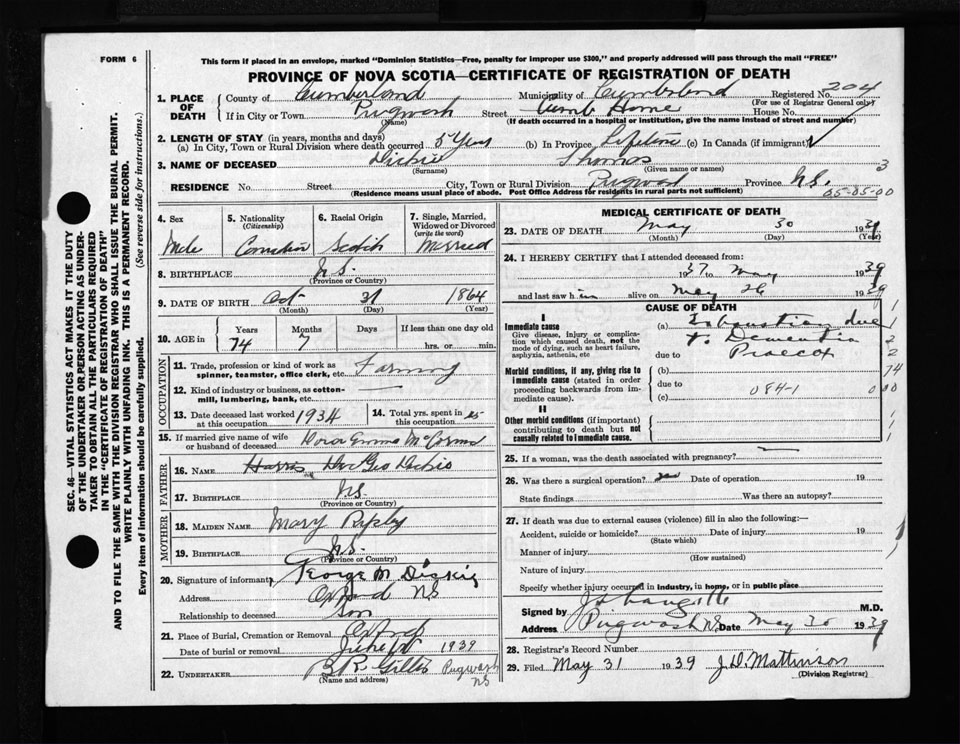 FORM 6
This form if placed in an envelope, marked "Dominion Statistics—Free, penalty for improper use $300," and properly addressed will pass through the mail "FREE"
PROVINCE OF NOVA SCOTIA—CERTIFICATE OF REGISTRATION OF DEATH
1. PLACE OF DEATH County of Cumberland Municipality of Cumberland Registered No. 204
(For use of Registrar General only)
If in City or Town Pugwash Street Cumb Home House No.
(Name) (If death occurred in a hospital or institution, give the name instead of street and number)
2. LENGTH OF STAY (in years, months and days)
(a) In City, Town or Rural Division where death occurred 5 Years (b) In Province Lifetime (c) In Canada (if immigrant)
3. NAME OF DECEASED Dickie Thomas
(Surname) (Given name or names) 3
RESIDENCE No. Street City, Town or Rural Division Pugwash Province N.S.
(Residence means usual place of abode. Post Office Address for residents in rural parts not sufficient) 05-05-00
4. Sex Male
5. Nationality (Citizenship) Canadian
6. Racial Origin Scotch
7. Single, Married, Widowed or Divorced (write the word) Married
8. BIRTHPLACE N.S.
(Province or Country)
9. DATE OF BIRTH Oct 31 1864
(Month) (Day) (Year)
10. AGE in Years 74 Months 7 Days If less than one day old hrs. or min.
OCCUPATION
11. Trade, profession or kind of work as spinner, teamster, office clerk, etc. Farming
12. Kind of industry or business, as cotton-mill, lumbering, bank, etc.
13. Date deceased last worked at this occupation 1934
14. Total yrs. spent in this occupation
15. If married give name of wife or husband of deceased Dora Emma
FATHER
16. NAME Geo Dickie
17. BIRTHPLACE N.S.
(Province or Country)
MOTHER
18. MAIDEN NAME Mary Ripley
19. BIRTHPLACE N.S.
(Province or Country)
20. Signature of informant George M Dickie
Address Oxford NS
Relationship to deceased Son
21. Place of Burial, Cremation or Removal Oxford
Date of burial or removal June 1939
22. UNDERTAKER Pugwash NS
(Name and address)
MEDICAL CERTIFICATE OF DEATH
23. DATE OF DEATH May 30 1939
(Month) (Day) (Year)
24. I HEREBY CERTIFY that I attended deceased from:
1937 to May 1939
and last saw him alive on May 26 1939
CAUSE OF DEATH
I
Immediate cause
Give disease, injury or complication which caused death, not the mode of dying, such as heart failure, asphyxia, asthenia, etc
(a) Exhaustion due to Dementia Praecox
due to
Morbid conditions, if any, giving rise to immediate cause (stated in order proceeding backwards from immediate cause).
(b)
due to 084-1
(c)
II
Other morbid conditions (if important) contributing to death but not causally related to immediate cause.
25. If a woman, was the death associated with pregnancy?
26. Was there a surgical operation? Date of operation 19
State findings Was there an autopsy?
27. If death was due to external causes (violence) fill in also the following:—
Accident, suicide or homicide? Date of injury 19
(State which)
Manner of injury
(How sustained)
Nature of injury
Specify whether injury occurred in Industry, in home, or in public place
Signed by M.D.
Address Pugwash N.S. Date May 30 1939
28. Registrar's Record Number
29. Filed May 31 1939 J.D. Mattinson
(Division Registrar)
SEC. 46—VITAL STATISTICS ACT MAKES IT THE DUTY
OF THE UNDERTAKER OR PERSON ACTING AS UNDER-
TAKER TO OBTAIN ALL THE PARTICULARS REQUIRED
IN THE "CERTIFICATE OF REGISTRATION OF DEATH"
AND TO FILE THE SAME WITH THE DIVISION REGISTRAR WHO SHALL ISSUE THE BURIAL PERMIT.
WRITE PLAINLY WITH UNFADING INK. THIS IS A PERMANENT RECORD.
Every item of Information should be carefully supplied. (See reverse side for instructions.)